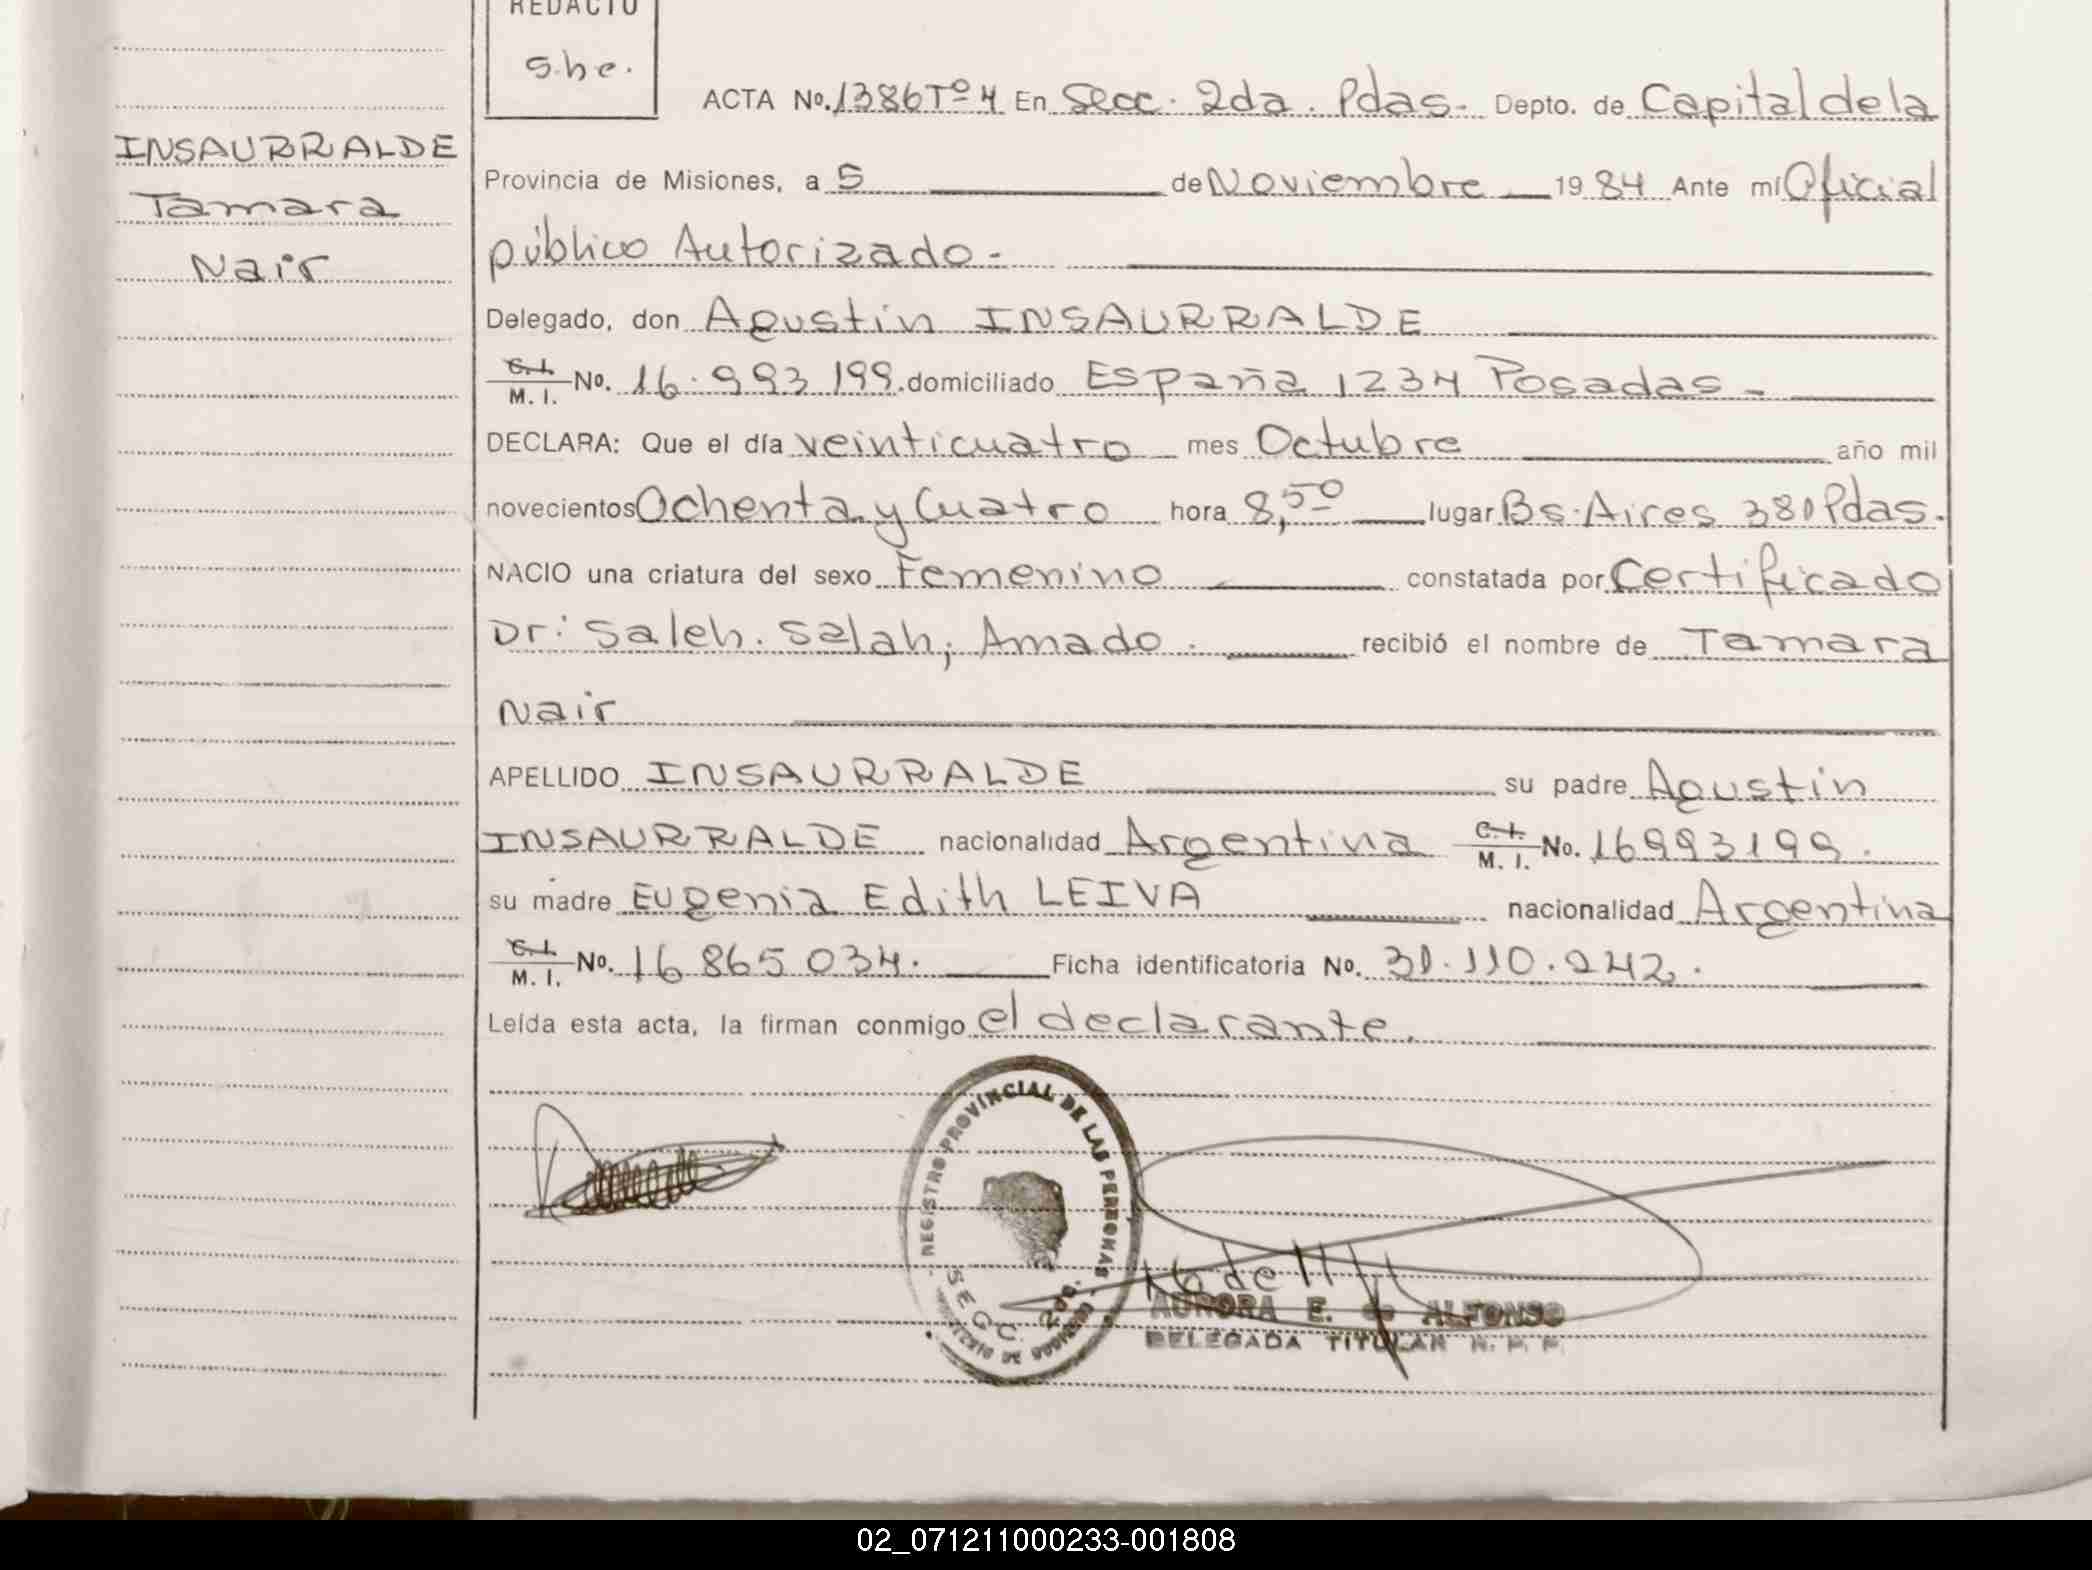 REDACTO
S.b.e.
ACTA No. 1386 Tº 4 En Secc. 2da. Pdas. Depto. de Capital de la
INSAURRALDE
Tamara
Nair
Provincia de Misiones, a 5 de Noviembre 1984 Ante mí Oficial
público Autorizado.-
Delegado, don Agustin INSAURRALDE
C.I. M. I. No. 16.993 199. domiciliado España 1234 Posadas -
DECLARA: Que el día veinticuatro mes Octubre año mil
novecientos Ochenta y Cuatro hora 8,50 lugar Bs. Aires 380 Pdas.
NACIO una criatura del sexo Femenino constatada por Certificado
Dr: Saleh. Salah, Amado. recibió el nombre de Tamara
Nair
APELLIDO INSAURRALDE su padre Agustin
INSAURRALDE nacionalidad Argentina C.I. M. I. No. 16993199.
su madre Eugenia Edith LEIVA nacionalidad Argentina
C.I. M. I. No. 16 865 034. Ficha identificatoria No. 31.110.242.
Leída esta acta, la firman conmigo el declarante.
REGISTRO PROVINCIAL DE LAS PERSONAS
SECC. 2da.
AURORA E. de ALFONSO
DELEGADA TITULAR R. P. P.
02_071211000233-001808